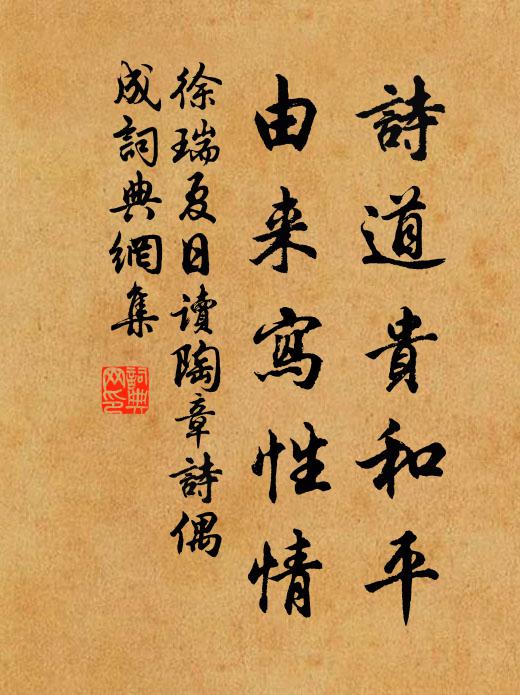 詩道貴和平
由来寫性情
徐瑞夏日讀陶章詩偶
成詞典網集
詞典网印